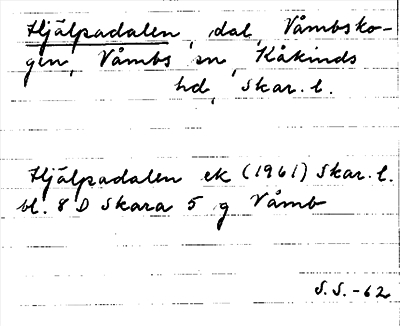 Hjälpadalen, dal, Våmbsko-
gen, Våmbs sn, Kåkinds
hd, Skar. l.
Hjälpadalen ek (1961) Skar. l.
bl. 8 D Skara 5 g Våmb
S.S. -62